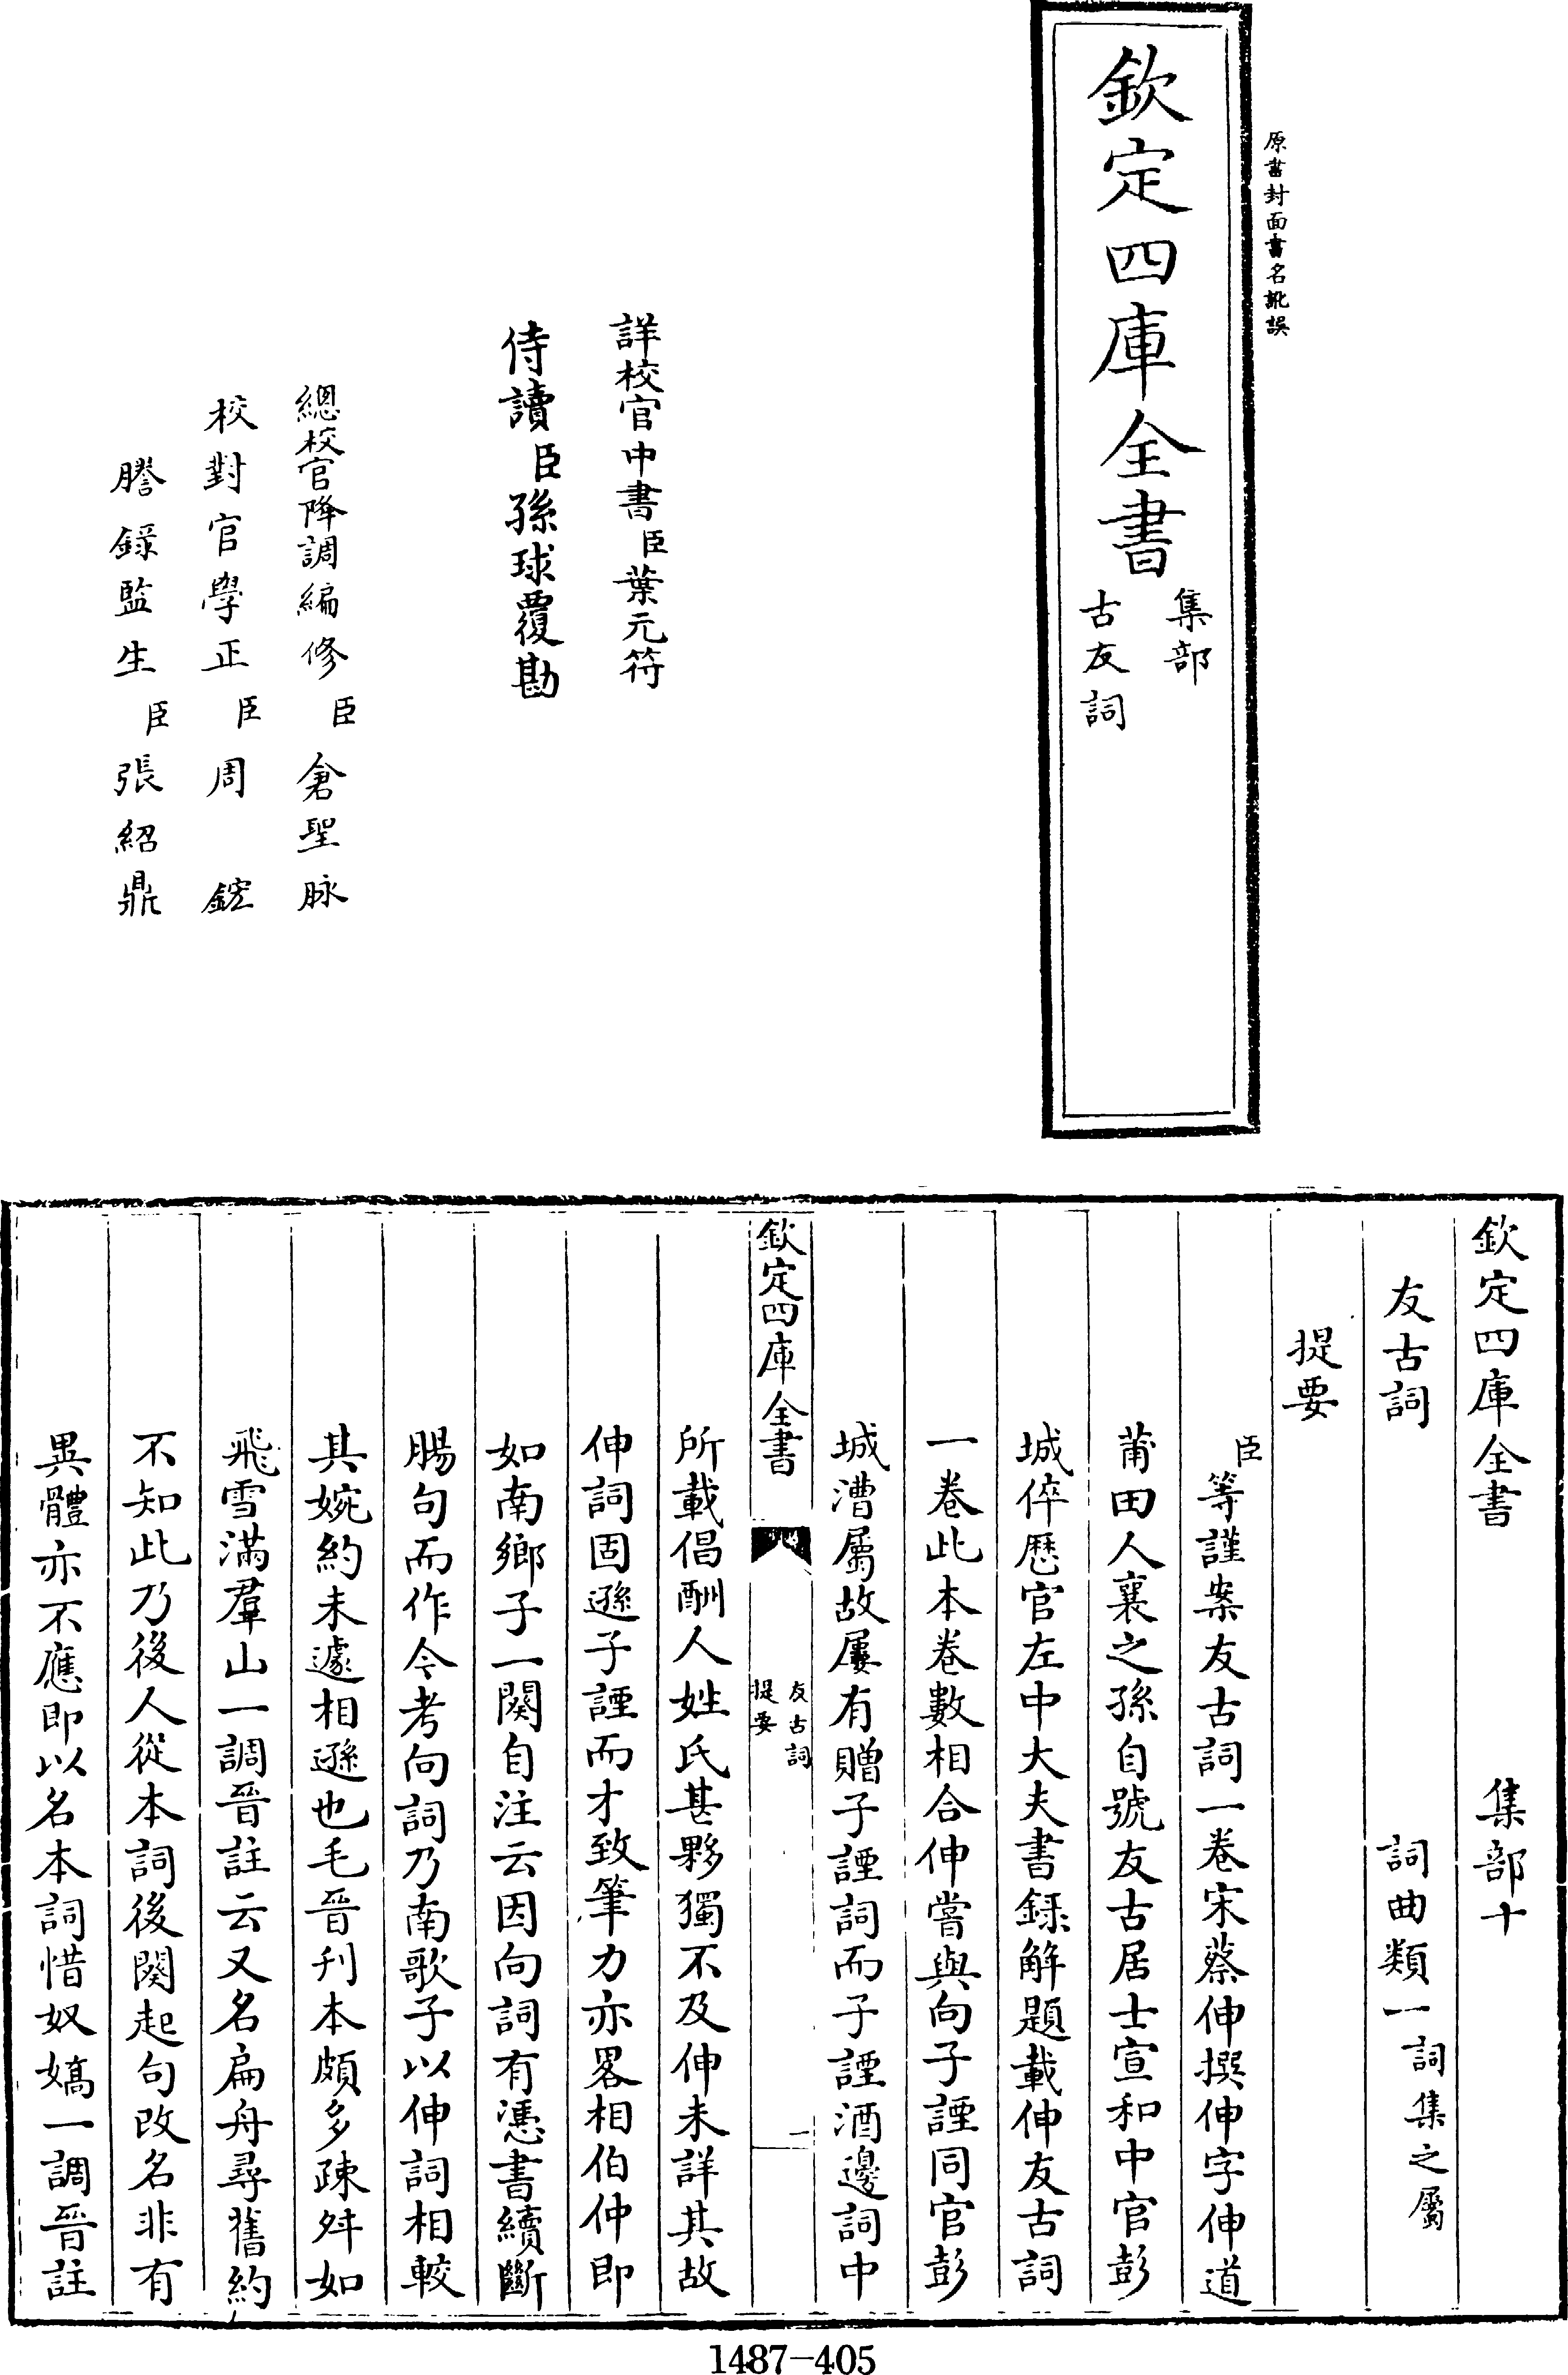 原書封面書名訛誤
欽定四庫全書
集部
古友詞
詳校官中書臣葉元符
侍讀臣孫球覆勘
總校官降調編修臣倉聖脉
校對官學正臣周鋐
謄錄監生臣張紹鼎
欽定四庫全書 集部十
友古詞 詞曲類一詞集之屬
提要
臣等謹案友古詞一卷宋蔡伸撰伸字伸道
莆田人襄之孫自號友古居士宣和中官彭
城倅歴官左中大夫書録解題載伸友古詞
一卷此本卷數相合伸嘗與向子諲同官彭
城漕屬故屢有贈子諲詞而子諲酒邊詞中
欽定四庫全書
友古詞
提要
一
所載倡酬人姓氏甚夥獨不及伸未詳其故
伸詞固遜子諲而才致筆力亦畧相伯仲即
如南鄉子一闋自注云因向詞有憑書續斷
腸句而作今考向詞乃南歌子以伸詞相較
其婉約未遽相遜也毛晉刋本頗多疎舛如
飛雪滿羣山一調晉註云又名扁舟尋舊約
不知此乃後人從本詞後闋起句改名非有
異體亦不應即以名本詞惜奴嬌一調晉註
1487-405